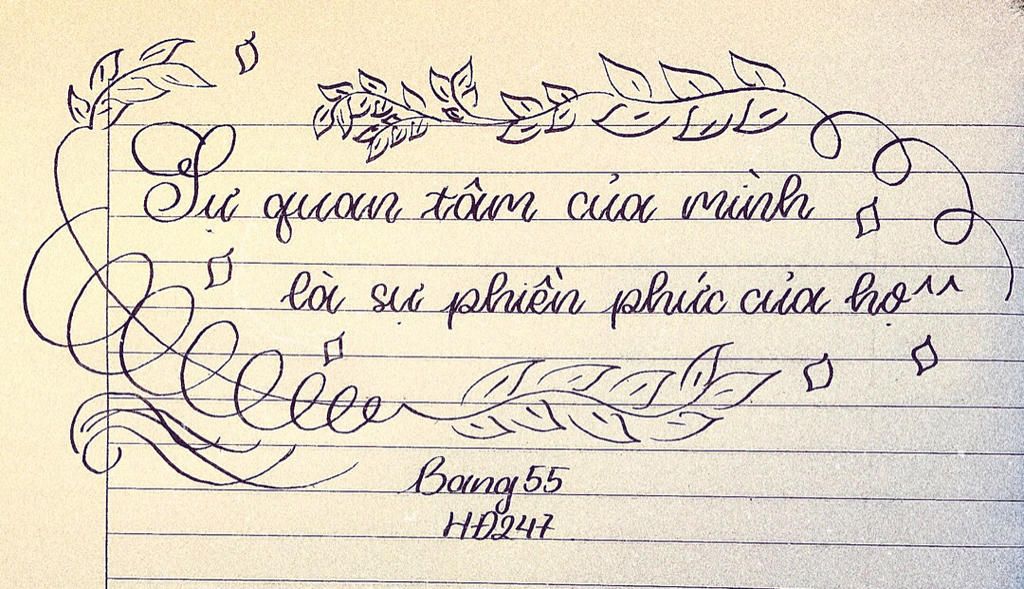 Sự quan tâm của mình
là sự phiền phức của họ ^^
Bang55
HĐ247